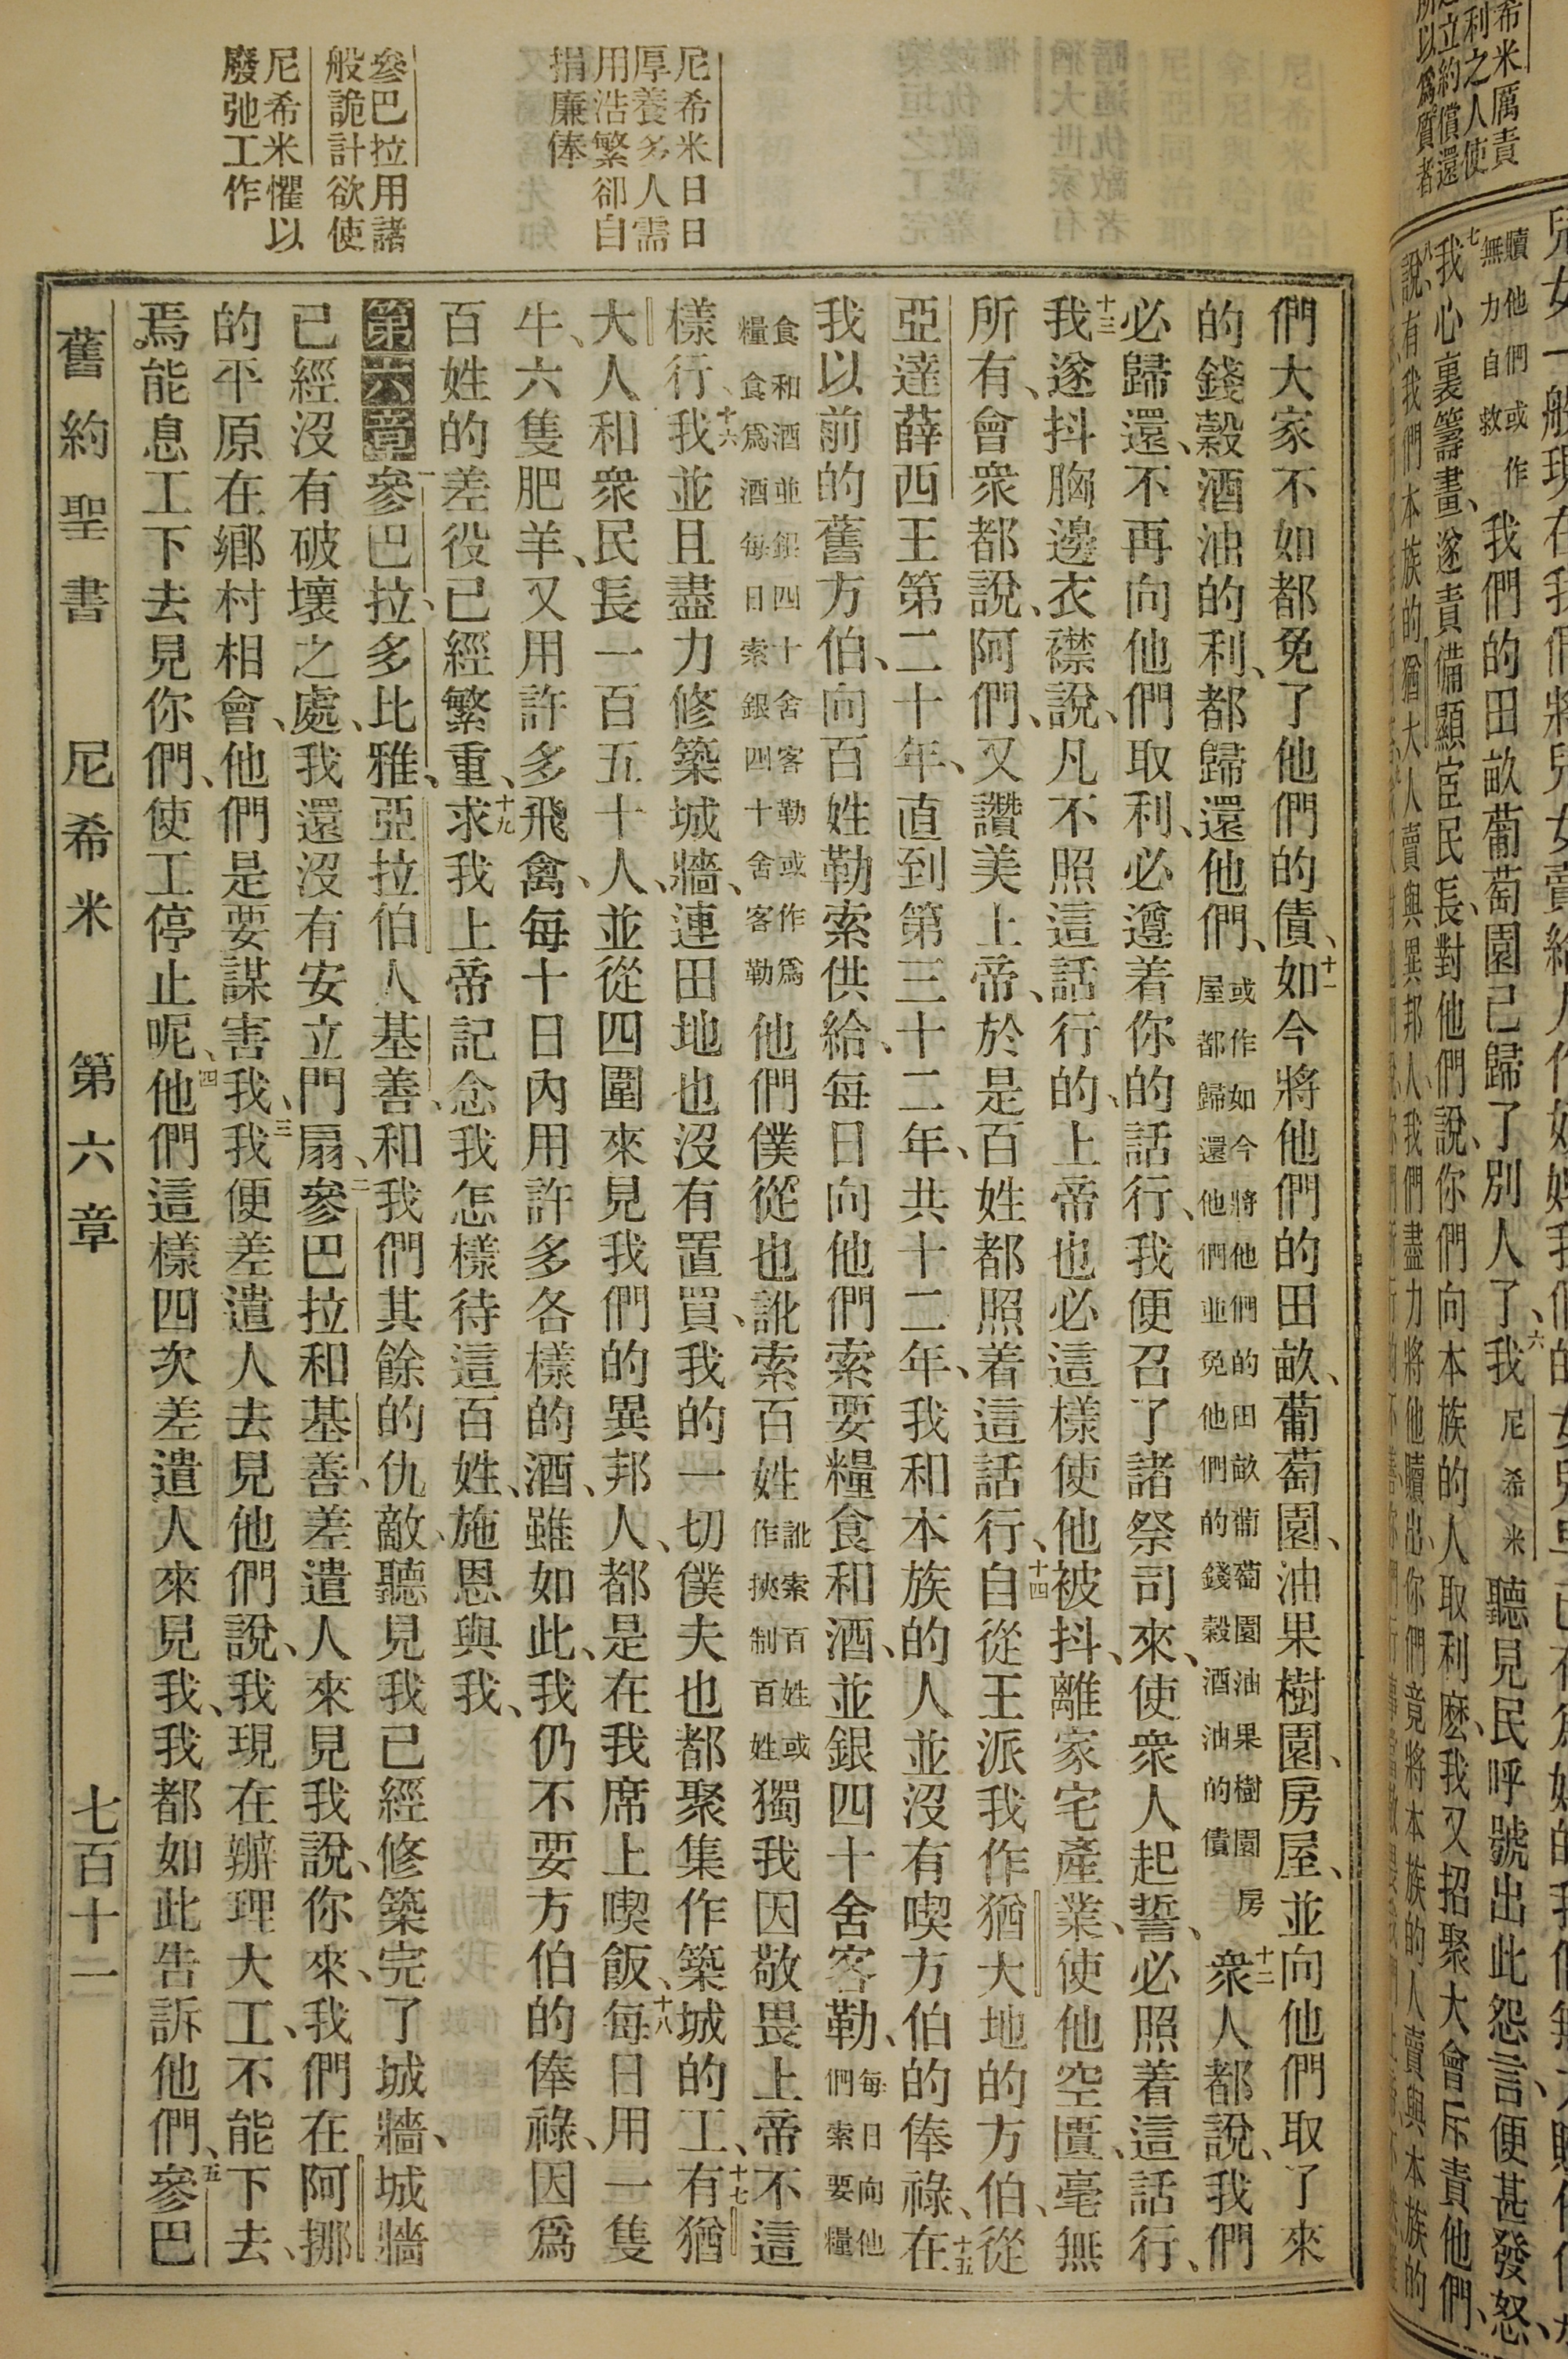 尼希米日日
厚養多人需
用浩繁卻自
捐廉俸
參巴拉用諸
般詭計欲使
尼希米懼以
廢弛工作
們大家不如都免了他們的債、十一如今將他們的田畝、葡萄園、油果樹園、房屋、並向他們取了來
的錢穀酒油的利、都歸還他們、或作如今將他們的田畝葡萄園油果樹園房屋都歸還他們並免他們的錢穀酒油的債十二衆人都說、我們
必歸還、不再向他們取利、必遵着你的話行、我便召了諸祭司來、使衆人起誓、必照着這話行、
十三我遂抖胸邊衣襟說、凡不照這話行的、上帝也必這樣使他被抖、離家宅產業、使他空匱、毫無
所有、會衆都說、阿們、又讚美上帝、於是百姓都照着這話行、十四自從王派我作猶大地的方伯、從
亞達薛西王第二十年、直到第三十二年、共十二年、我和本族的人並沒有喫方伯的俸祿、十五在
我以前的舊方伯、向百姓勒索供給、每日向他們索要糧食和酒、並銀四十舍客勒、每日向他們索要糧
食和酒並銀四十舍客勒或作爲糧食爲酒每日索銀四十舍客勒他們僕從也訛索百姓訛索百姓或作挾制百姓獨我因敬畏上帝不這
樣行、十六我並且盡力修築城牆、連田地也沒有置買、我的一切僕夫也都聚集作築城的工、十七有猶
大人和衆民長一百五十人、並從四圍來見我們的異邦人、都是在我席上喫飯、十八每日用一隻
牛、六隻肥羊、又用許多飛禽、每十日內用許多各樣的酒、雖如此、我仍不要方伯的俸祿、因爲
百姓的差役已經繁重、十九求我上帝記念我怎樣待這百姓、施恩與我、
第六章一參巴拉、多比雅、亞拉伯人基善、和我們其餘的仇敵、聽見我已經修築完了城牆、城牆
已經沒有破壞之處、我還沒有安立門扇、二參巴拉和基善、差遣人來見我說、你來、我們在阿挪
的平原在鄉村相會、他們是要謀害我、三我便差遣人去見他們說、我現在辦理大工、不能下去、
焉能息工下去見你們、使工停止呢、四他們這樣四次差遣人來見我、我都如此告訴他們、五參巴
舊約聖書 尼希米 第六章 七百十一